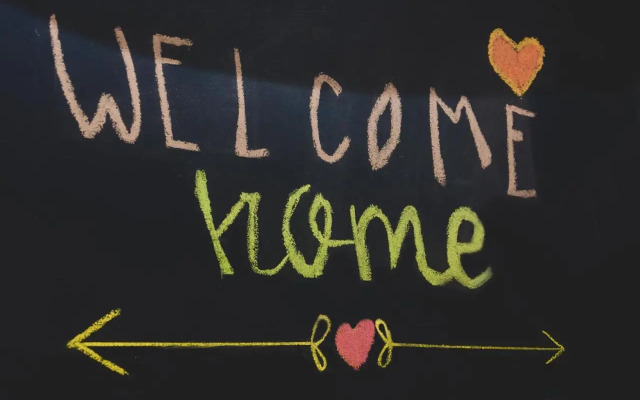 WELCOME
home